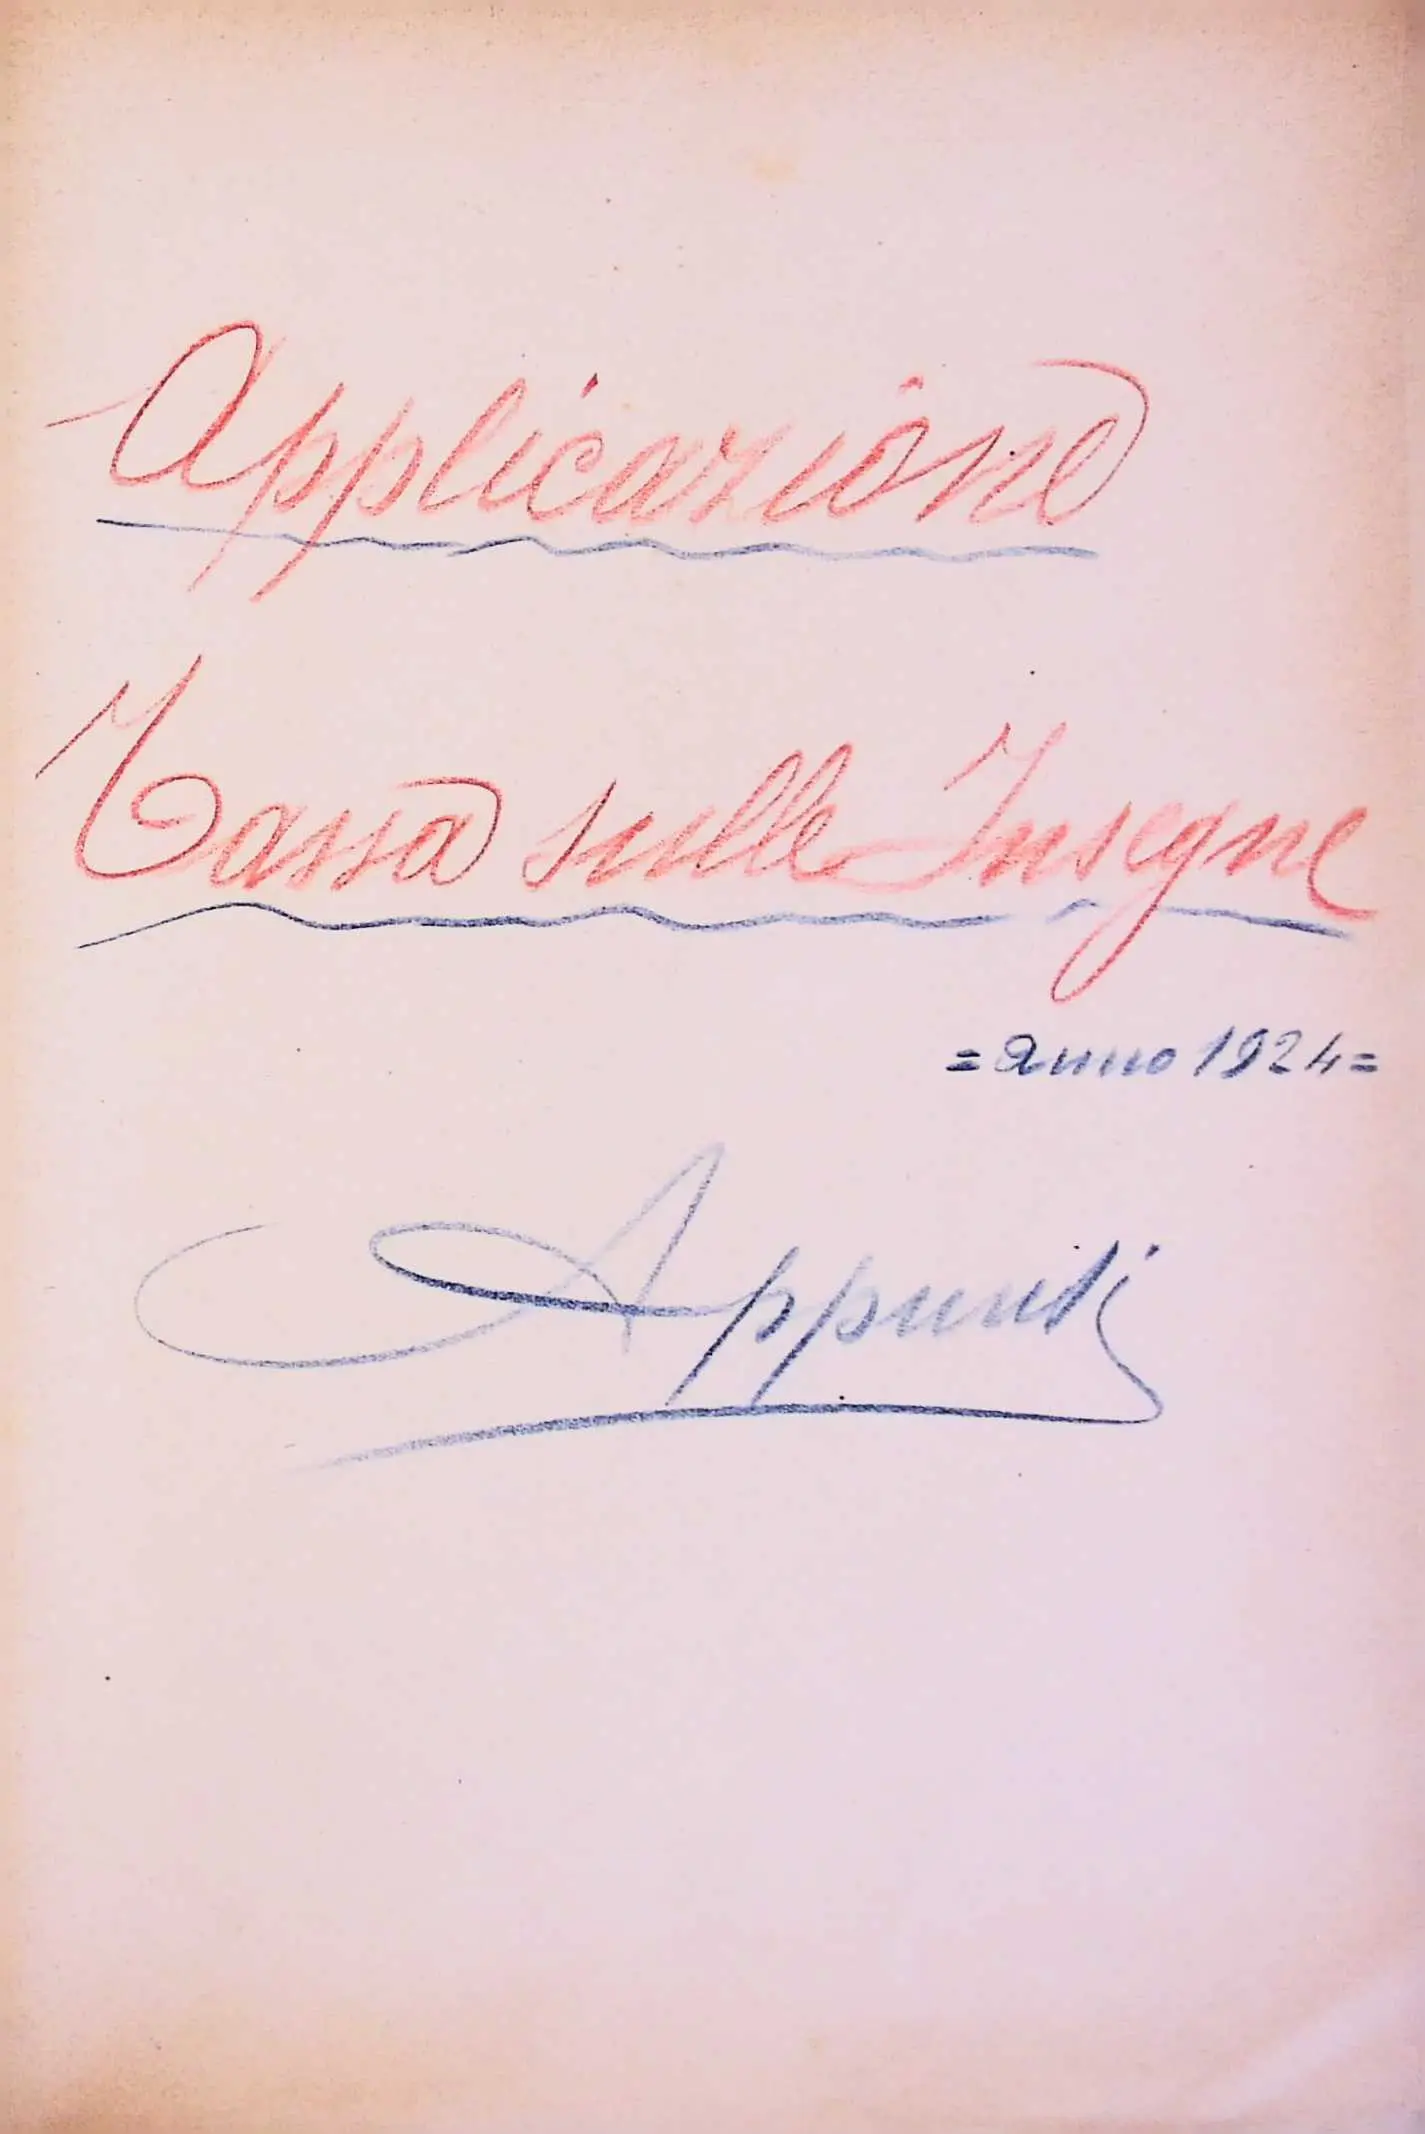 Applicazione
Tassa sulle Insegne
= Anno 1924 =
Appunti